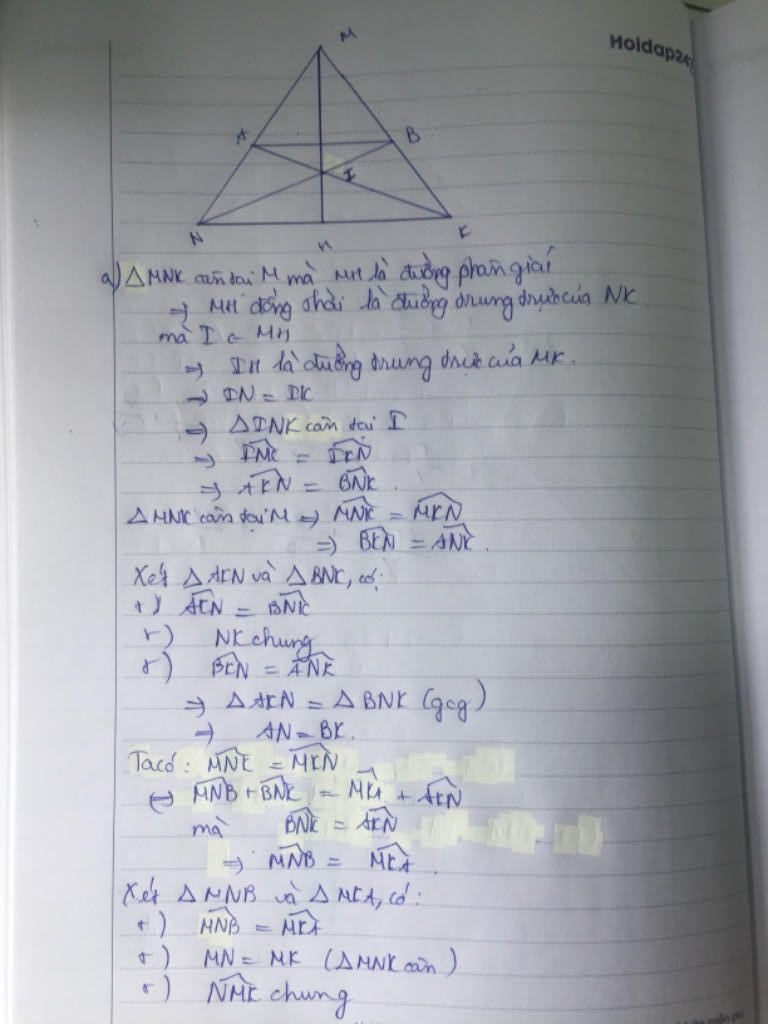 M
Hoidap247
A
B
I
N
H
K
a) △MNK cân tại M mà MH là đường phân giác
⇒ MH đồng thời là đường trung trực của NK
mà I ∈ MH
⇒ IH là đường trung trực của MK.
⇒ IN = IK
⇒ △INK cân tại I
⇒ = IKN
⇒ AKN = BNK.
△MNK cân tại M ⇒ MNK = MKN
⇒ BKN = ANK.
Xét △AKN và △BNK, có:
+) AKN = BNK
+) NK chung
+) BKN = ANK
⇒ △AKN = △BNK (gcg)
⇒ AN = BK.
Ta có: MNK = MKN
⇔ MNB + BNK = MKA + AKN
mà BNK = AKN
⇒ MNB = MKA.
Xét △MNB và △MKA, có:
+) MNB = MKA
+) MN = MK (△MNK cân)
+) NMK chung